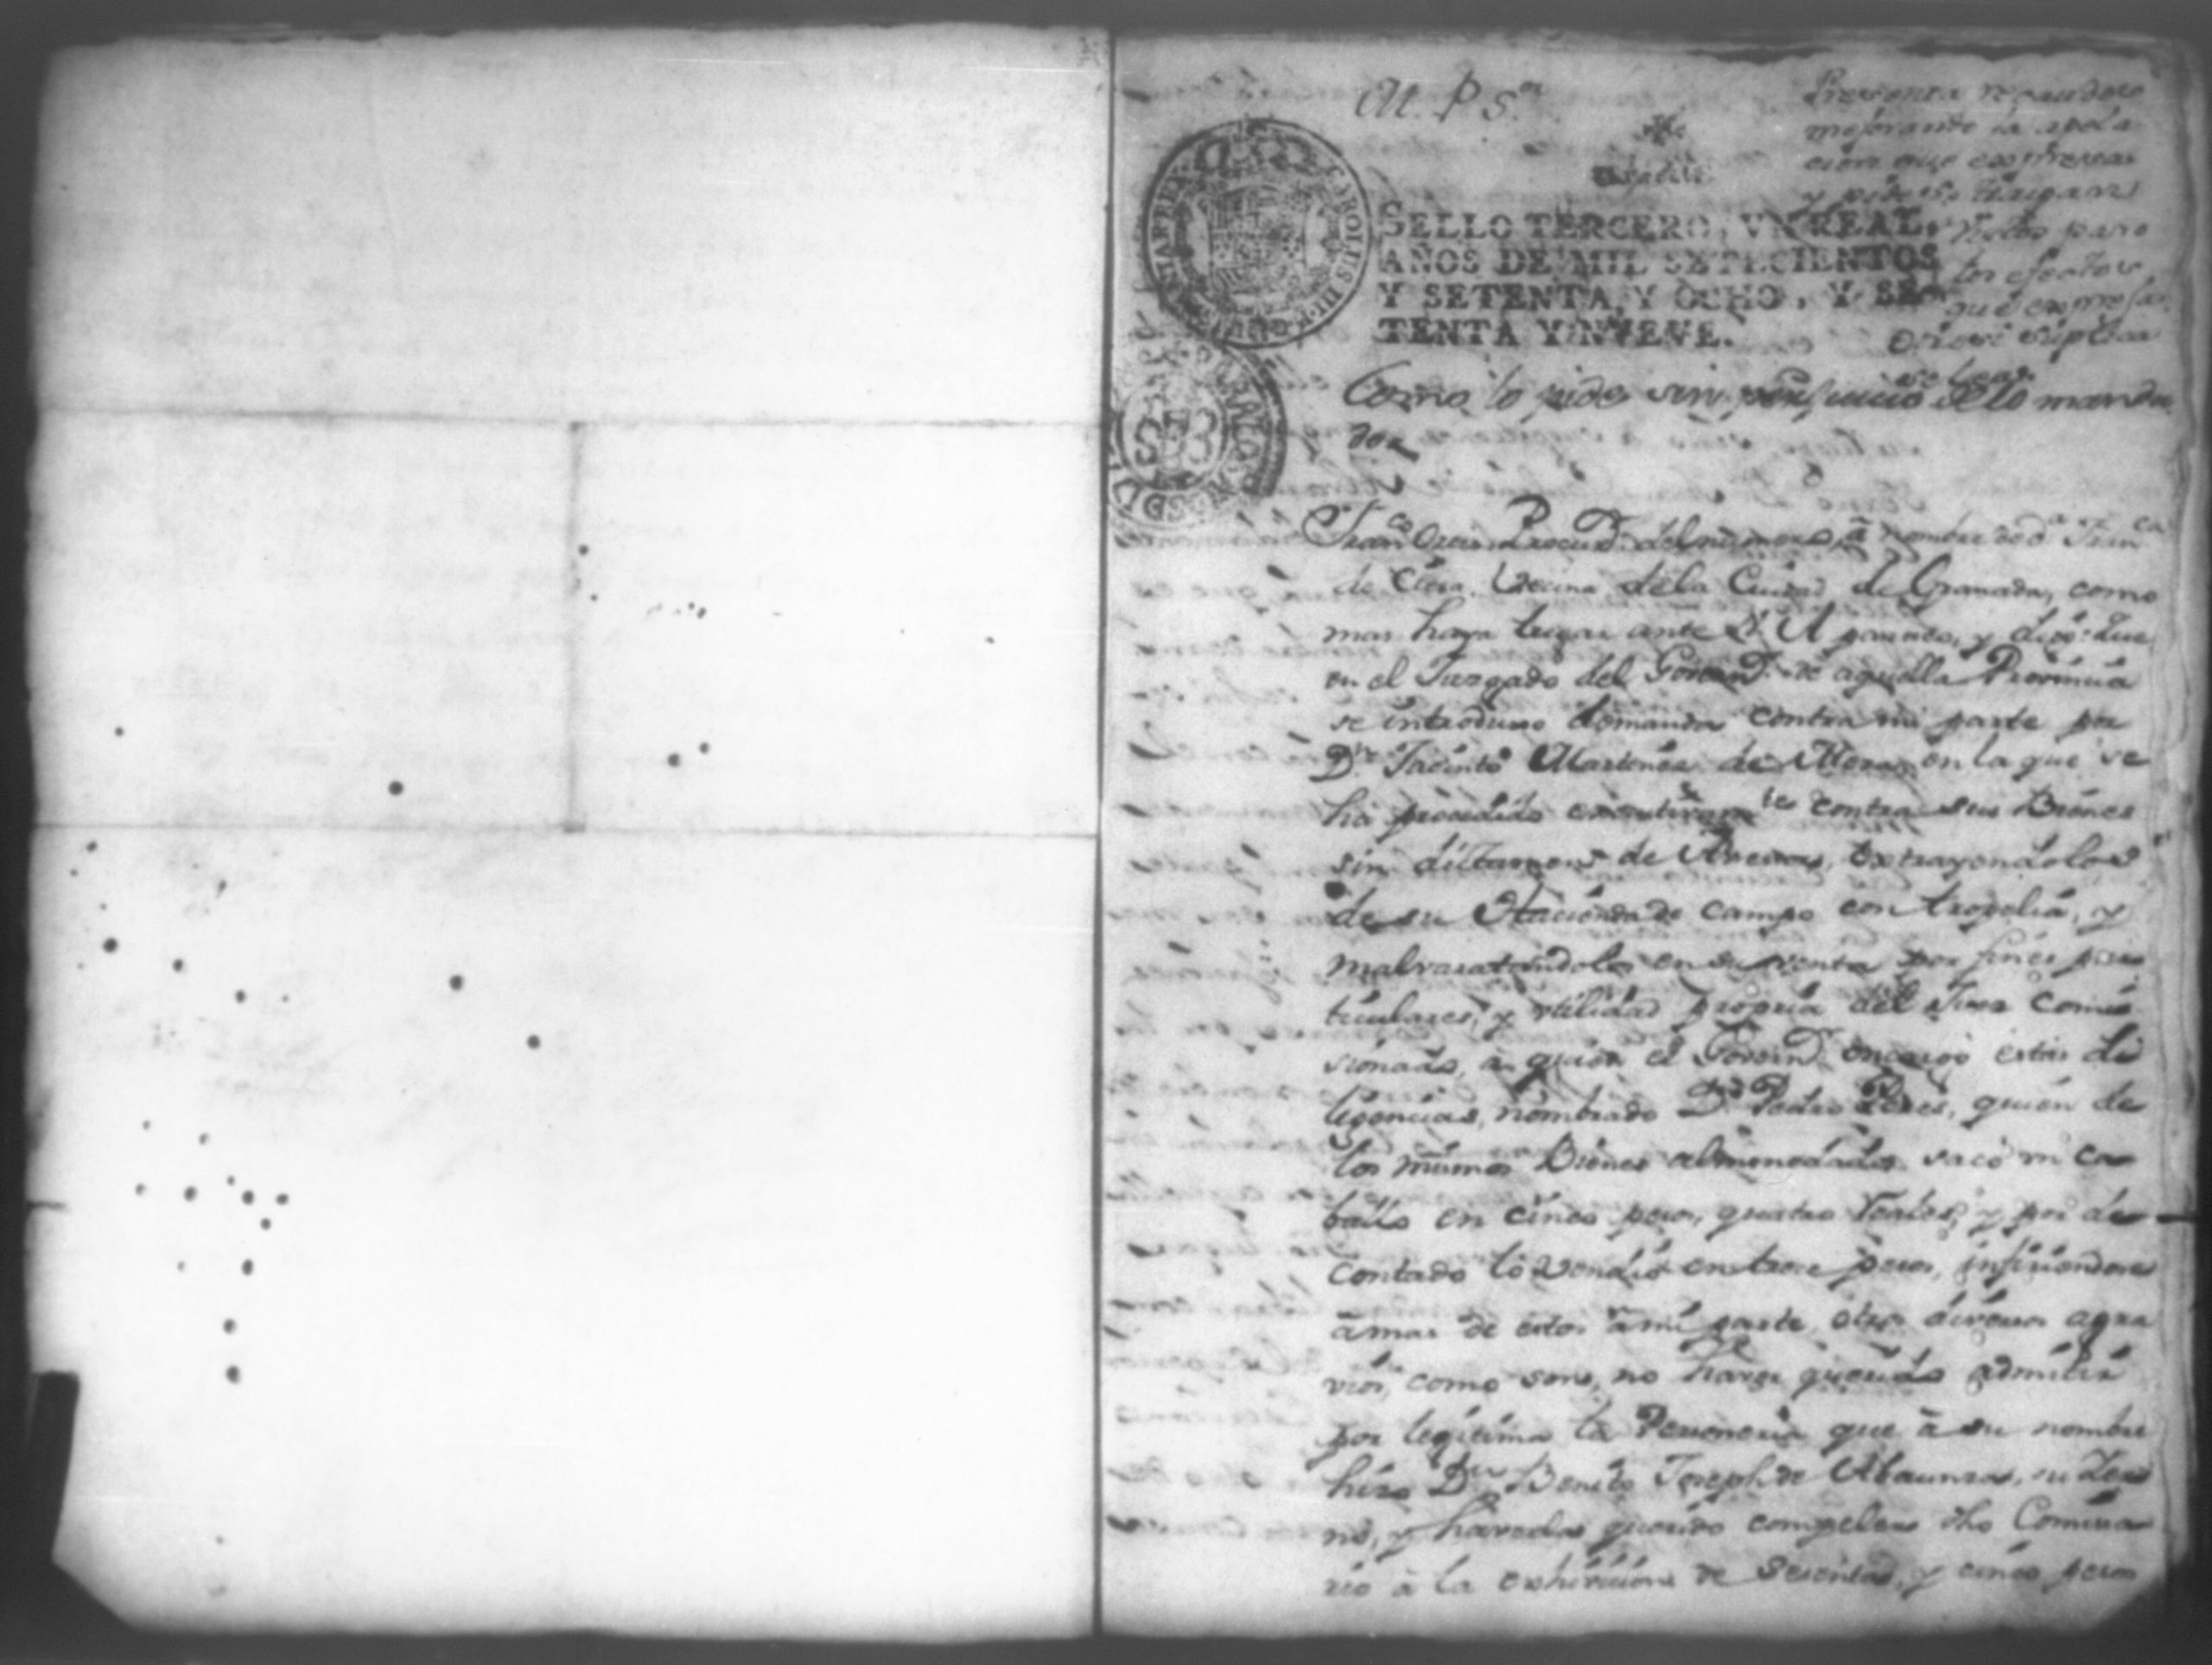 M. P. S.or
Presenta
mejorando la apela
cion que expresa
y pide se traigan
Autos para
los efectos
que expresa
otrosi suplica
CAROLUS III
SELLO TERCERO, VN REAL,
AÑOS DE MIL SETECIENTOS
Y SETENTA, Y OCHO, Y SE-
TENTA Y NVEVE.
Como lo pide sin perjuicio de lo manda
do
Fran.co Procu.r del numero, à nombre de d.a Fran.ca
de Vecina dela Ciudad de Granada, como
mas haya lugar ante V. A. paresco, y digo: Que
en el Juzgado del Govern.r de aquella Provincia
se introduxo demanda contra mi parte por
D.n Jacinto Martinez de en la que se
ha procedido executivam.te contra sus Bienes
sin dictamen de extrayendolos
de su Hacienda de campo con tropelia, y
malvaratandolos en su venta por fines par
ticulares, y utilidad propria del Juez Comi
sionado, à quien el Govern.r encargó estas di
ligencias, nombrado D.n Pedro quien de
los mismos Bienes almonedados sacó un ca
ballo en cinco pesos, quatro reales, y por de
contado lo vendió en trece pesos, infiriendose
à mas de estos à mi parte otros diversos agra
vios, como son, no haver querido admitir
por legitima la Personeria que à su nombre
hizo D.n Benito Joseph de Abaunza, su
no, y haverla querido compeler dho Comisa
rio à la exhivicion de sesenta, y cinco pesos